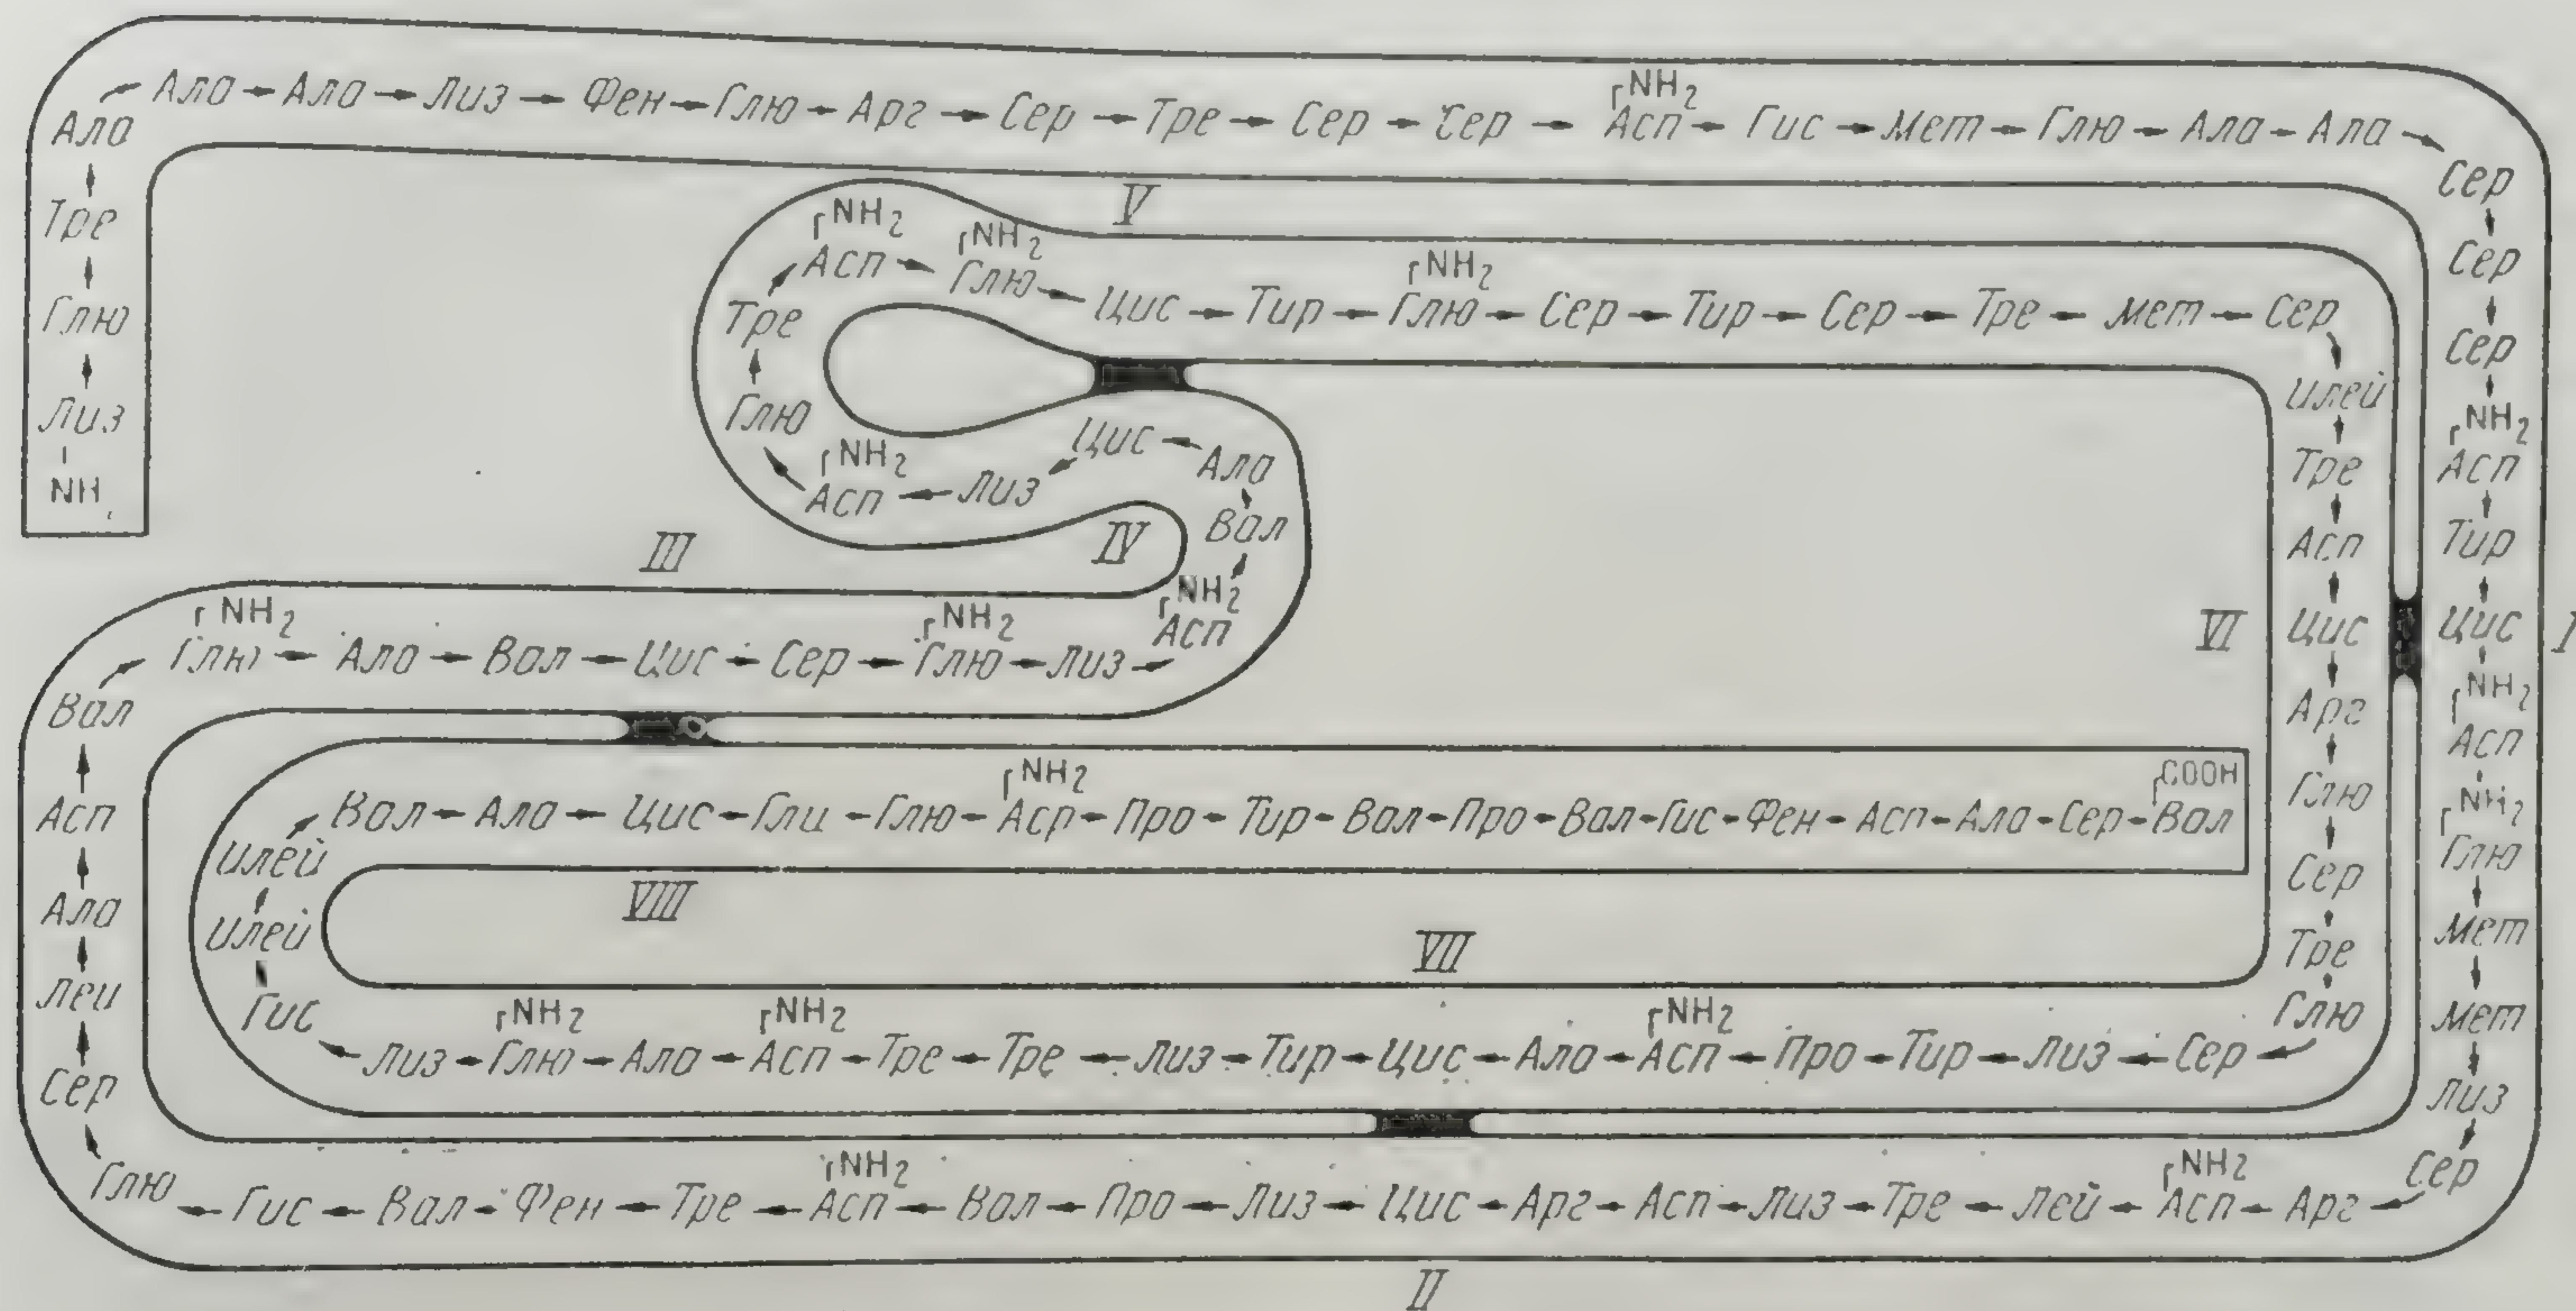 Ала Ала Лиз Фен Глю Арг Сер Тре Сер Сер Асп NH2 Гис Мет Глю Ала Ала
Ала
Тре
Глю
Лиз
NH
Сер
Сер
Сер
Асп NH2
Тир
Цис
I
Асп NH2
Глю NH2
Мет
Мет
Лиз
Сер
Арг Асп NH2 Лей Тре Лиз Асп Арг Цис Лиз Про Вал Асп NH2 Тре Фен Вал Гис Глю
II
Сер
Лей
Ала
Асп
Вал
Глю NH2 Ала Вал Цис Сер Глю NH2 Лиз Асп NH2
III
IV
Вал
Ала
Цис
Лиз
Асп NH2
Глю
Тре
Асп NH2
Глю NH2
V
Цис Тир Глю NH2 Сер Тир Сер Тре Мет Сер
Илей
Тре
Асп
Цис
VI
Арг
Глю
Сер
Тре
Глю
Сер Лиз Тир Про Асп NH2 Ала Цис Тир Лиз Тре Тре Асп NH2 Ала Глю NH2 Лиз
VII
Гис
Илей
Илей
Вал Ала Цис Гли Глю Аср NH2 Про Тир Вал Про Вал Гис Фен Асп Ала Сер Вал COOH
VIII